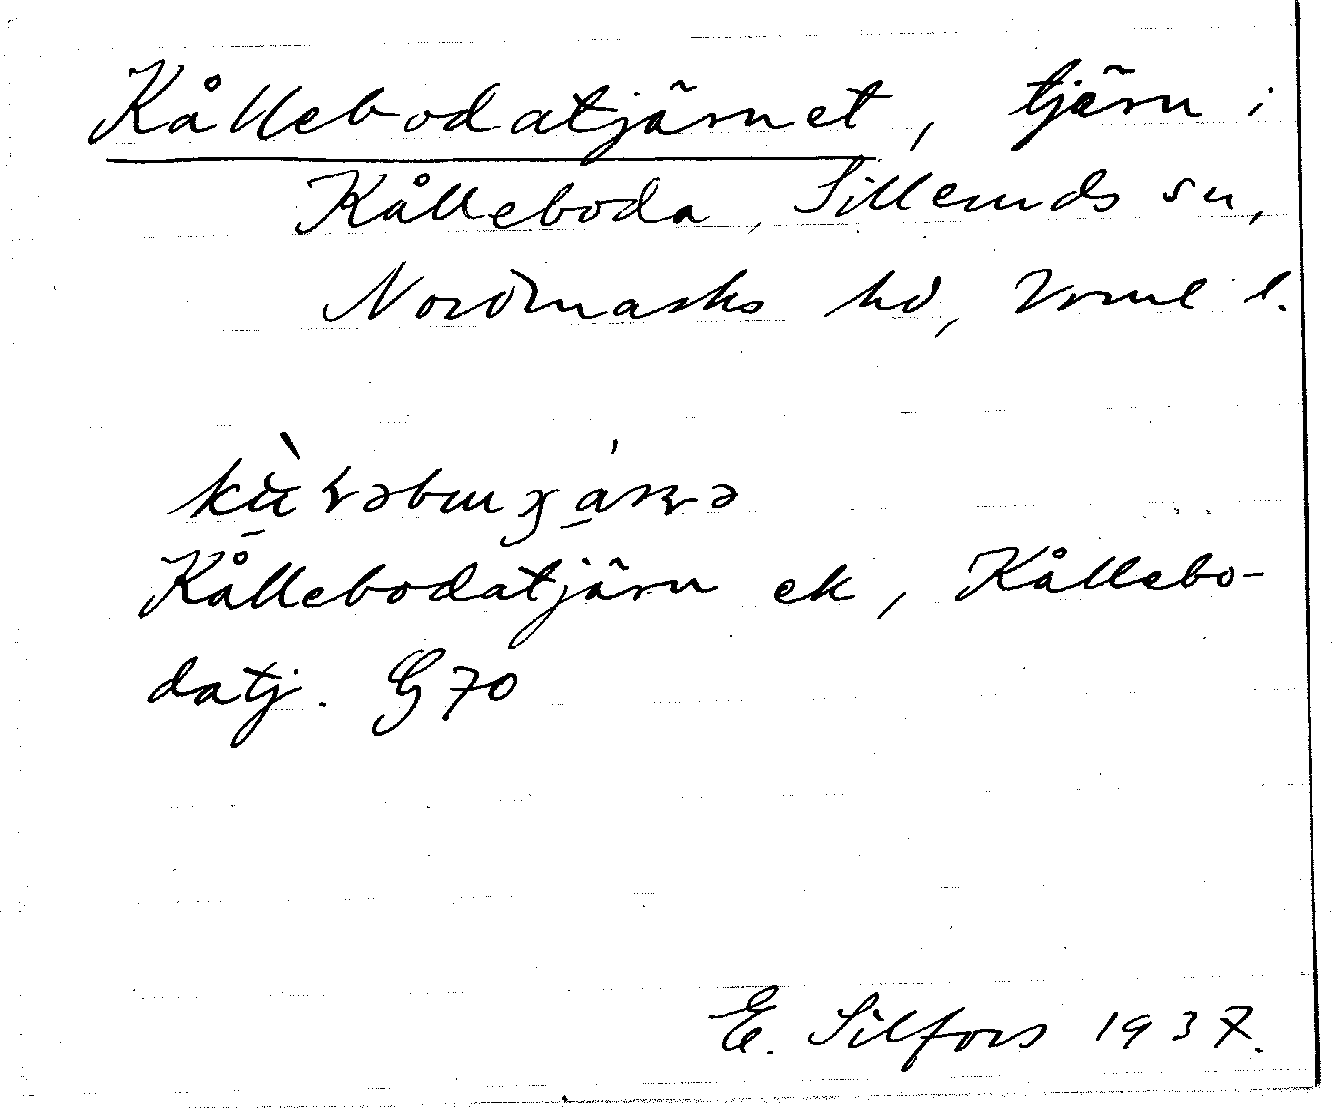 Kållebodatjärnet, tjärn i
Kålleboda, Silleruds sn,
Nordmarks hd, Vrml l.
Kållebodatjärn ek, Kållebo-
datj. G 70
E. Silfors 1937.